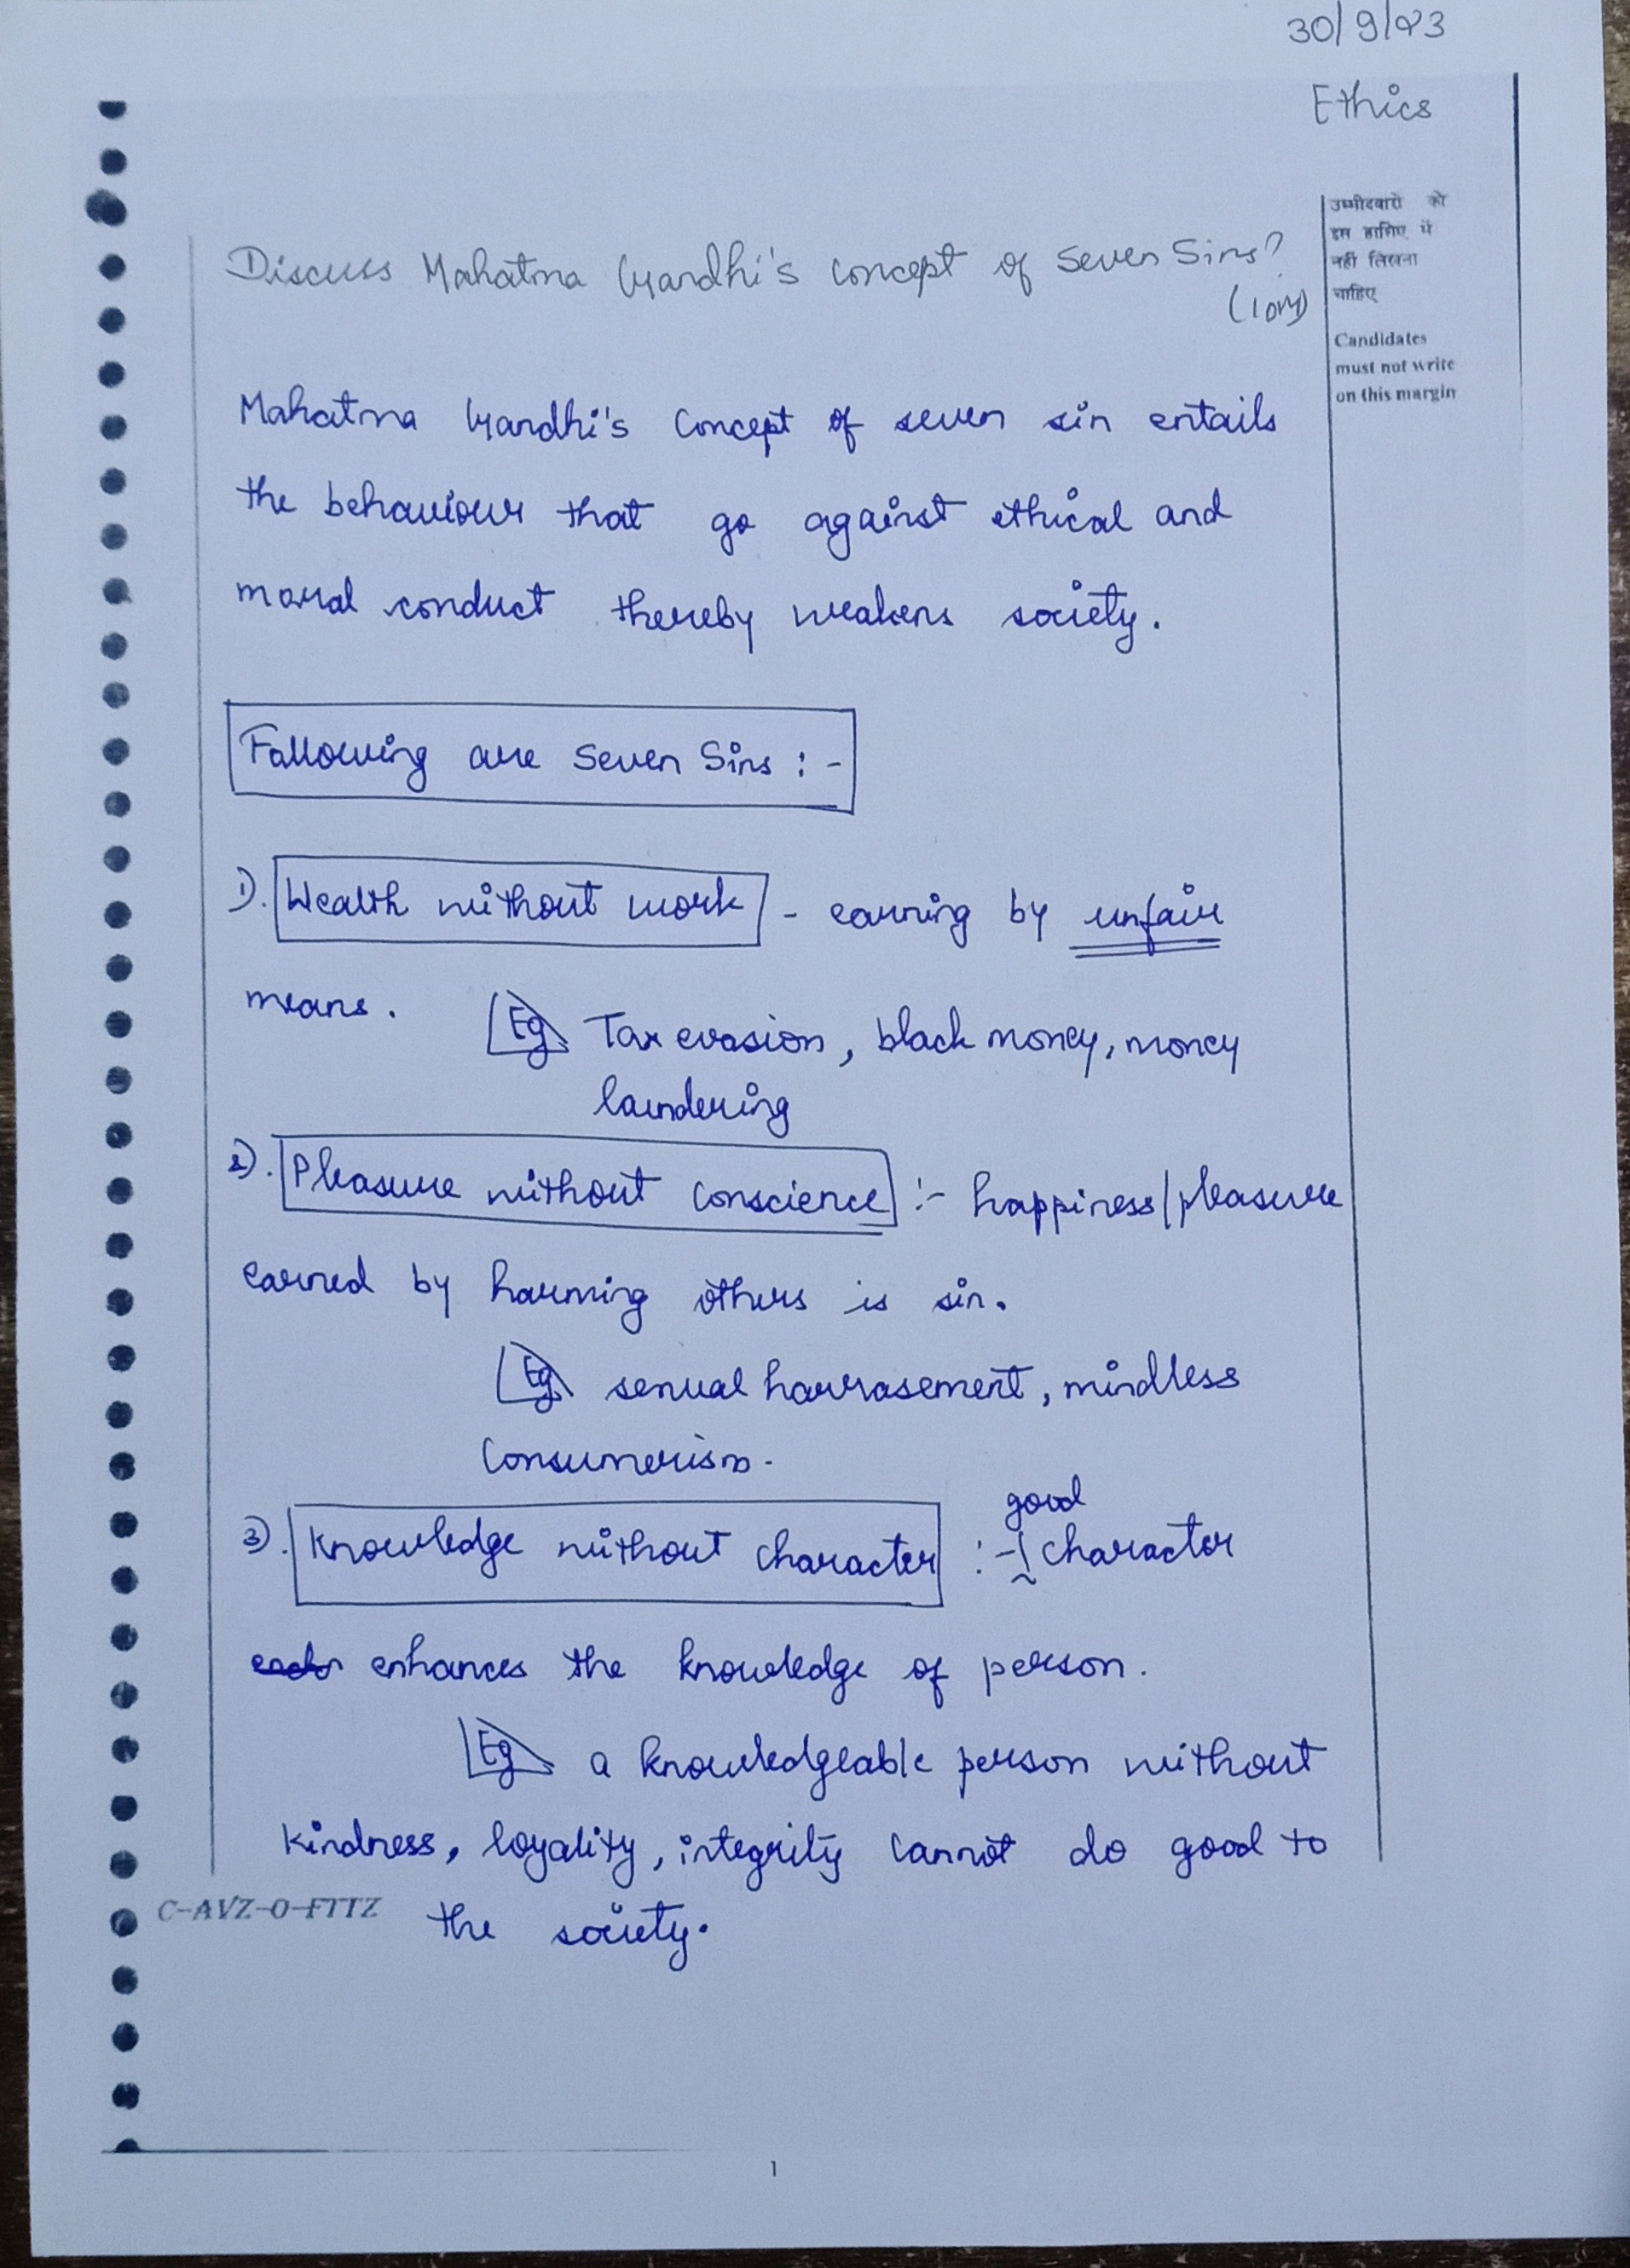 30/9/23
Ethics
उम्मीदवारों को
इस हाशिए में
नहीं लिखना
चाहिए
Candidates
must not write
on this margin
Discuss Mahatma Gandhi's concept of Seven Sins?
(10M)
Mahatma Gandhi's Concept of seven sin entails
the behaviour that go against ethical and
moral conduct thereby weakens society.
Following are Seven Sins :-
1). Wealth without work - earning by unfair
means. Eg Tax evasion, black money, money
laundering
2). Pleasure without conscience :- happiness/pleasure
earned by harming others is sin.
Eg sexual harrasement, mindless
Consumerism.
good
3). Knowledge without character :- character
enhances the knowledge of person.
Eg a knowledgeable person without
kindness, loyality, integrity cannot do good to
the society.
C-AVZ-O-FTTZ
1